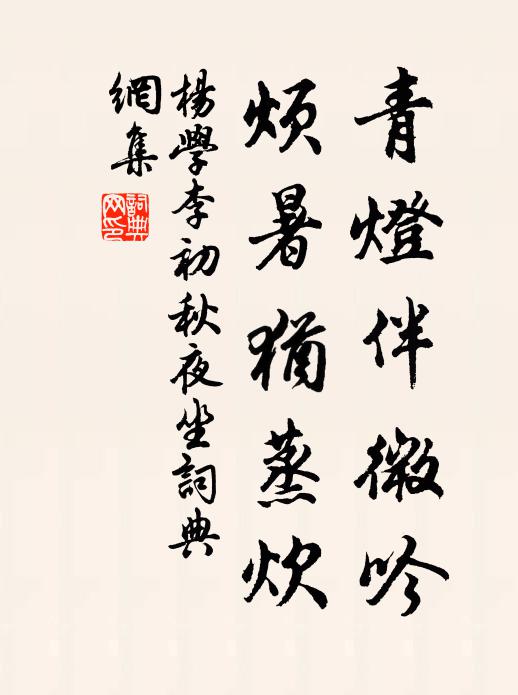 青燈伴微吟
煩暑猶蒸炊
楊學李初秋夜坐詞典
網集
詞典网印